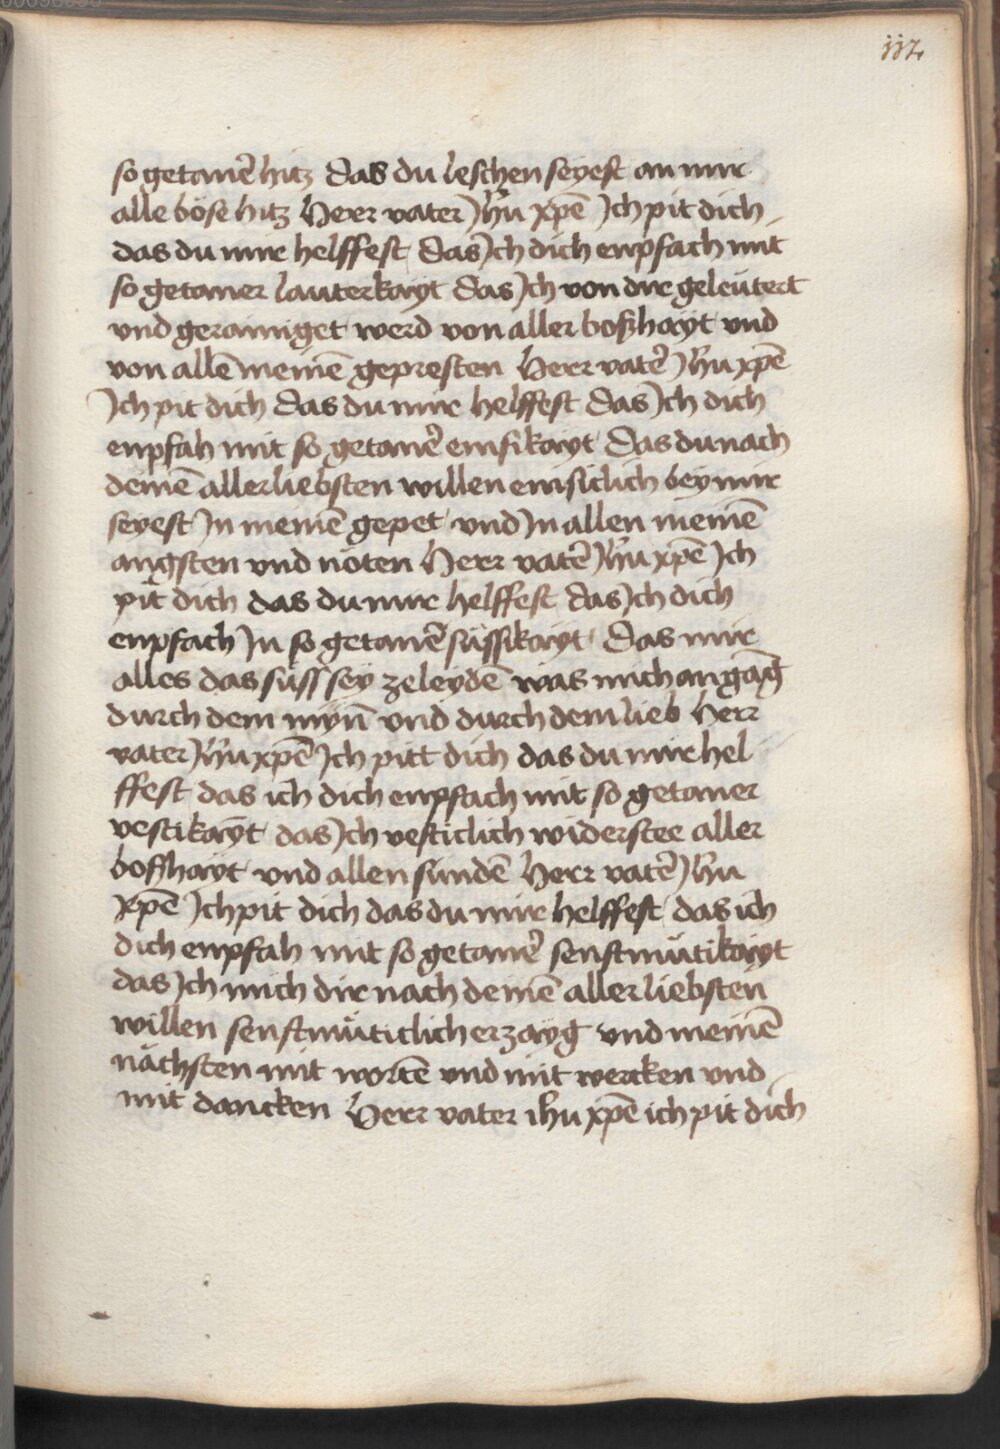 117
so getanē hitz das du leschen seyest an mir
alle böse hitz Herr vater Jhū xp̄e Jch pit dich
das du mir helffest das Jch dich enpfach mit
so getaner lauterkayt das Jch von dir geleütert
vnd gerainiget werd von aller boßhayt vnd
von allē meinē gepresten Herr vatē Jhū xp̄e
Jch pit dich das du mir helffest das Jch dich
enpfah mit so getanē emsikayt das du nach
deinē aller liebsten willen emsiclich bey mir
seyest Jn meinē gepet vnd Jn allen meinē
angsten vnd nöten Herr vatē Jhū xp̄e Jch
pit dich das du mir helffest das Jch dich
enpfach Jn so getanē süssikayt das mir
alles das süss sey ze leydē was mich angāg
durch dein mȳn vnd durch dein lieb Herr
vater Jhū xp̄e Jch pitt dich das du mir hel
ffest das ich dich enpfach mit so getaner
vestikayt das Jch vesticlich widerstee aller
boßhayt vnd allen sündē Herr vatē Jhū
xp̄e Jch pit dich das du mir helffest das ich
dich enpfah mit so getanē senftmütikayt
das Jch mich dir nach deinē aller liebsten
willen senftmüticlich erzayg vnd meinē
nächsten mit wortē vnd mit wercken vnd
mit dancken Herr vater ihū xp̄e ich pit dich